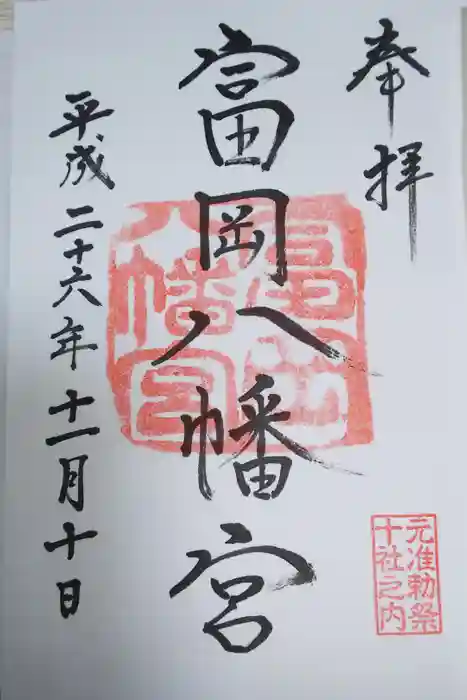 奉拝
富岡八幡宮
富岡八幡宮
平成二十六年十一月十日
元准勅祭
十社之内